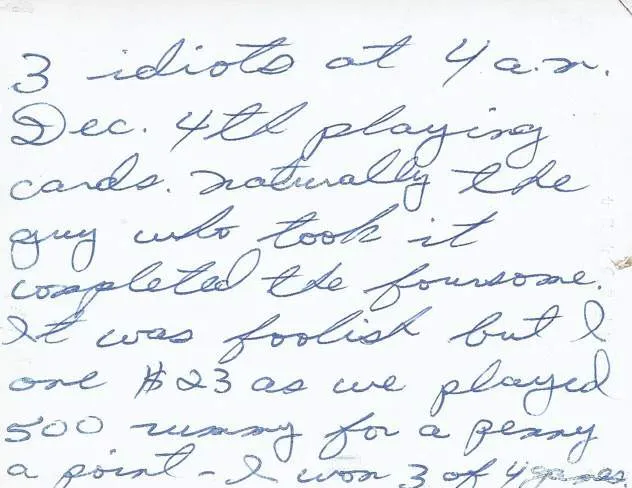 3 idiots at 4 a.m.
Dec. 4th playing
cards. naturally the
guy who took it
completed the foursome.
It was foolish but I
one $23 as we played
500 rummy for a penny
a point - I won 3 of 4 games.